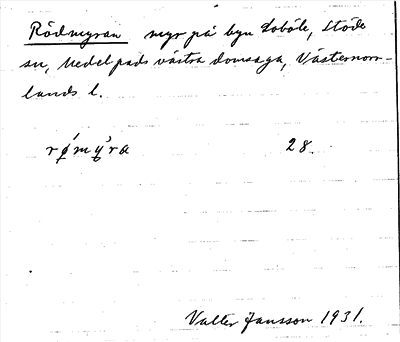 Rödmyran myr på byn Lobole, Stöde
sn, Medelpads västra domsaga, Västernorr-
lands l.
rǿmỳ̨ra 28.
Valter Jansson 1931.